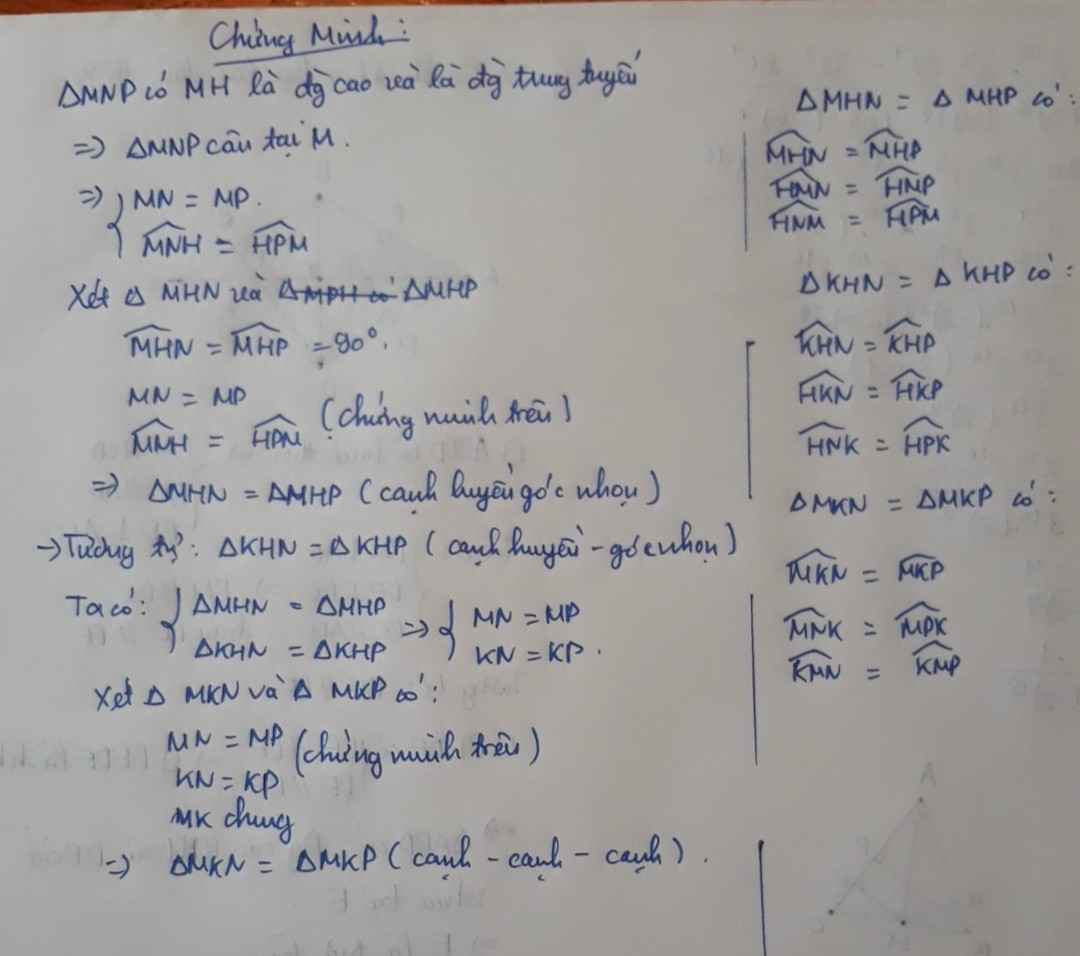 Chứng Minh:
ΔMNP có MH là đg cao và là đg trung tuyến
=> ΔMNP cân tại M.
=> { MN = MP.
\widehat{MNH} = \widehat{HPM}
Xét Δ MHN và ~~ΔMPH có~~ ΔMHP
\widehat{MHN} = \widehat{MHP} = 90°.
MN = MP
\widehat{MNH} = \widehat{HPM} (chứng minh trên)
=> ΔMHN = ΔMHP (cạnh huyền góc nhọn)
→ Tương tự: ΔKHN = ΔKHP (cạnh huyền - góc nhọn)
Ta có: { ΔMHN = ΔMHP => { MN = MP
ΔKHN = ΔKHP KN = KP.
Xét Δ MKN và Δ MKP có:
MN = MP (chứng minh trên)
KN = KP
MK chung
=> ΔMKN = ΔMKP (cạnh - cạnh - cạnh).
ΔMHN = Δ MHP có:
\widehat{MHN} = \widehat{MHP}
\widehat{HMN} = \widehat{HMP}
\widehat{HNM} = \widehat{HPM}
ΔKHN = Δ KHP có:
\widehat{KHN} = \widehat{KHP}
\widehat{HKN} = \widehat{HKP}
\widehat{HNK} = \widehat{HPK}
ΔMKN = ΔMKP có:
\widehat{MKN} = \widehat{MKP}
\widehat{MNK} = \widehat{MPK}
\widehat{KMN} = \widehat{KMP}